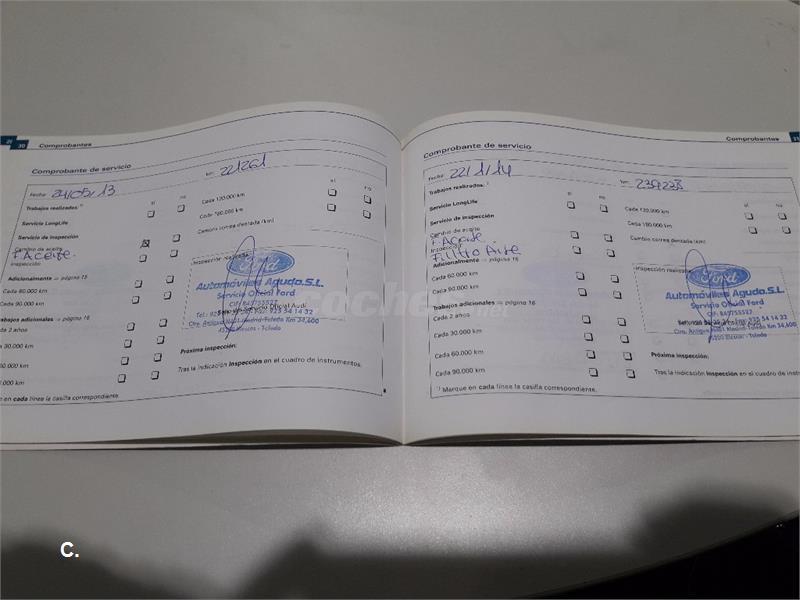 30 Comprobantes
Comprobante de servicio
Fecha: 24/05/13 km: 221261
Trabajos realizados: sí no
Servicio LongLife
Servicio de inspección
Cambio de aceite
+ Aceite.
Inspección
Adicionalmente ⇒ página 15
Cada 60.000 km
Cada 90.000 km
Trabajos adicionales ⇒ página 16
Cada 2 años
30.000 km
60.000 km
sí no
Cada 120.000 km
Cada 180.000 km
Cambio correa dentada (km)
Inspección realizada
Ford
Automóviles Aguda S.L.
Servicio Oficial Ford
Servicio Oficial Audi
Ctra. Antigua N401 Madrid-Toledo Km 34,600
45200 Illescas - Toledo
Próxima inspección:
Tras la indicación inspección en el cuadro de instrumentos.
en cada línea la casilla correspondiente.
Comprobantes 31
Comprobante de servicio
Fecha: 22/1/14 km:
Trabajos realizados: sí no
Servicio LongLife
Servicio de inspección
Cambio de aceite
+ Aceite.
Inspección
Filtro Aire
Adicionalmente ⇒ página 15
Cada 60.000 km
Cada 90.000 km
Trabajos adicionales ⇒ página 16
Cada 2 años
Cada 30.000 km
Cada 60.000 km
Cada 90.000 km
Cada 120.000 km
Cada 180.000 km
Cambio correa dentada (km)
Inspección realizada
Ford
Automóviles Aguda S.L.
Servicio Oficial Ford
Ctra. Antigua N401 Madrid-Toledo Km 34,600
45200 Illescas - Toledo
Próxima inspección:
Tras la indicación inspección en el cuadro de
1) Marque en cada línea la casilla correspondiente.
coches.net
C.